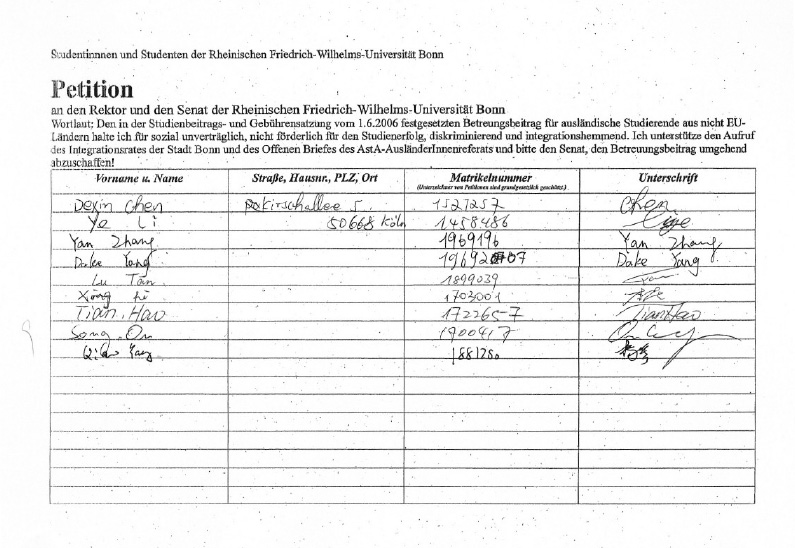 Studentinnnen und Studenten der Rheinischen Friedrich-Wilhelms-Universität Bonn
Petition
an den Rektor und den Senat der Rheinischen Friedrich-Wilhelms-Universität Bonn
Wortlaut: Den in der Studienbeitrags- und Gebührensatzung vom 1.6.2006 festgesetzten Betreuungsbeitrag für ausländische Studierende aus nicht EU-
Ländern halte ich für sozial unverträglich, nicht förderlich für den Studienerfolg, diskriminierend und integrationshemmend. Ich unterstütze den Aufruf
des Integrationsrates der Stadt Bonn und des Offenen Briefes des AstA-AusländerInnenreferats und bitte den Senat, den Betreuungsbeitrag umgehend
abzuschaffen!
Vorname u. Name Straße, Hausnr., PLZ, Ort Matrikelnummer Unterschrift
(Unterzeichner von Petitionen sind grundgesetzlich geschützt.)
Dexin Chen Kirschallee 5. 1527257 Chen
Ye Li 50668 Köln 1458486
Yan Zhang 1969196 Yan Zhang
Dake Yang 07 Dake Yang
Lu Tan 1899039
1703001
Tian, Hao 172265-7 TianHao
Song 1900417
Yang 1881280